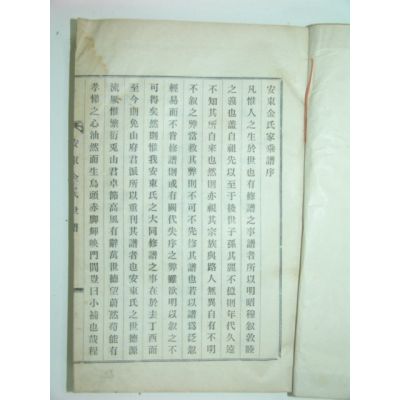 安東金氏家乘譜序
凡惟人之生於世也有修譜之事譜者所以明昭穆叙敦睦
之義也蓋自祖先以至于後世子孫其麗不億則年代久遠
不知其所自來也然則亦視其宗族與路人無異自有不明
不叙之弊當救其弊則不可不先修其譜也若以譜爲泛忽
輕易而不肯修譜則或有闕代失序之弊雖欲明以叙之不
可得矣然則惟我安東氏之大同修譜之事在於去丁酉而
至今則免山府君派所以重刊其譜者也安東氏之世德源
流厥惟繁衍兎山府君卓節高風有辭萬世德望蔚然荀能有
孝悌之心油然而生烏頭赤脚輝映門閭豈曰小補也哉程
安東金氏世譜